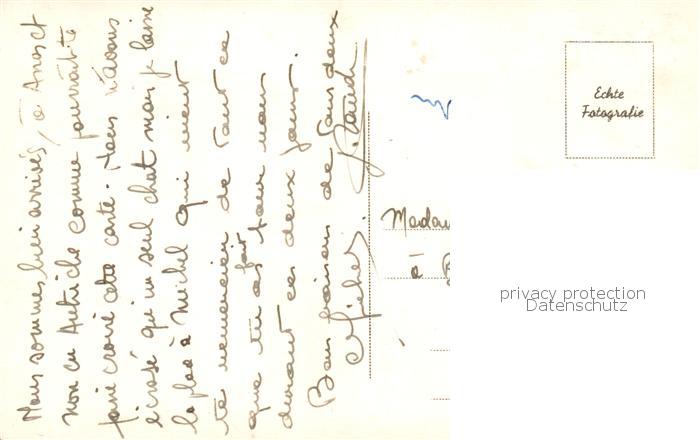 Nous sommes bien arrivés, à Anost
non en Autriche comme pourrait te
faire croire cette carte. Nous n'avons
écrasé qu'un seul chat mais je laisse
la place à Michel qui vient
te remercier de tout ce
que tu as fait pour nous
durant ces deux jours.
Bons baisers de tous deux
Michel.
Echte
Fotografie
Madam
à
privacy protection
Datenschutz